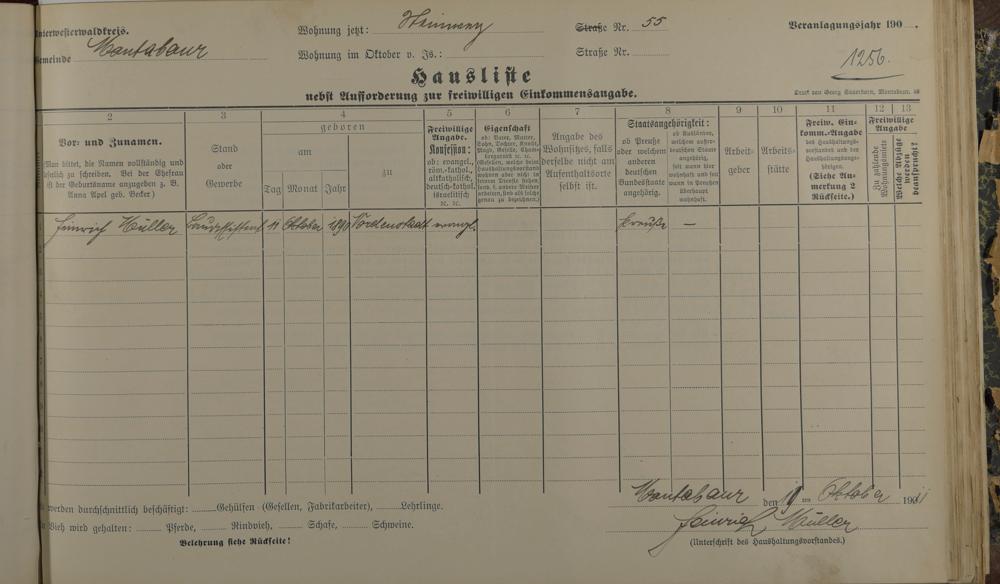 Unterwesterwaldkreis.
Gemeinde Montabaur
Wohnung jetzt: Steinweg Straße Nr. 55
Wohnung im Oktober v. Js.: Straße Nr.
Veranlagungsjahr 190
1256.
Hausliste
nebst Aufforderung zur freiwilligen Einkommensangabe.
Druck von Georg Sauerborn, Montabaur.
2 3 4 5 6 7 8 9 10 11 12 13
Vor- und Zunamen.
(Man bittet, die Namen vollständig und
deutlich zu schreiben. Bei der Ehefrau
ist der Geburtsname anzugeben z. B.
Anna Apel geb. Becker)
Stand
oder
Gewerbe
geboren
am
zu
Tag Monat Jahr
Freiwillige
Angabe.
Konfession:
ob: evangel.,
röm.-kathol.,
altkatholisch,
deutsch-kathol.
israelitisch
ꝛc. ꝛc.
Eigenschaft
Angabe des
Wohnsitzes, falls
derselbe nicht am
Aufenthaltsorte
selbst ist.
Staatsangehörigkeit:
ob Preuße
oder welchem
anderen
deutschen
Bundesstaate
angehörig.
ob Ausländer,
welchem außer-
deutschen Staate
angehörig,
seit wann hier
wohnhaft und seit
wann in Preußen
überhaupt
wohnhaft.
Arbeit-
geber
Arbeits-
stätte
Freiw. Ein-
komm.-Angabe
des Haushaltungs-
vorstandes und der
Haushaltungsange-
hörigen.
(Siehe An-
merkung 2
Rückseite.)
Freiwillige
Angabe
Zu zahlende
Wohnungsmiete
Welche Abzüge
werden
beansprucht?
Heinrich Müller 11 Oktober 1890 Nordenstadt evangl. Preuße —
werden durchschnittlich beschäftigt: Gehülfen (Gesellen, Fabrikarbeiter), Lehrlinge.
Vieh wird gehalten: Pferde, Rindvieh, Schafe, Schweine.
Belehrung siehe Rückseite!
Montabaur den 19 ten Oktober 1911
Heinrich Müller
(Unterschrift des Haushaltungsvorstandes.)